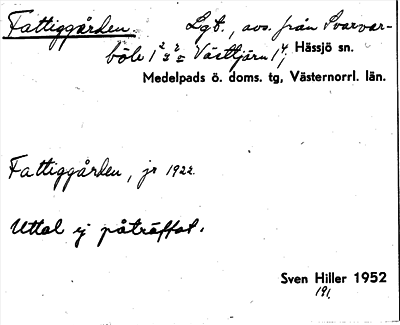 Fattiggården. Lgt., avs. från Svarvar-
böle 1 Västtjärn 1⁴, Hässjö sn.
Medelpads ö. doms. tg, Västernorrl. län.
Fattiggården, jr 1922.
Uttal ej påträffat.
Sven Hiller 1952
191.